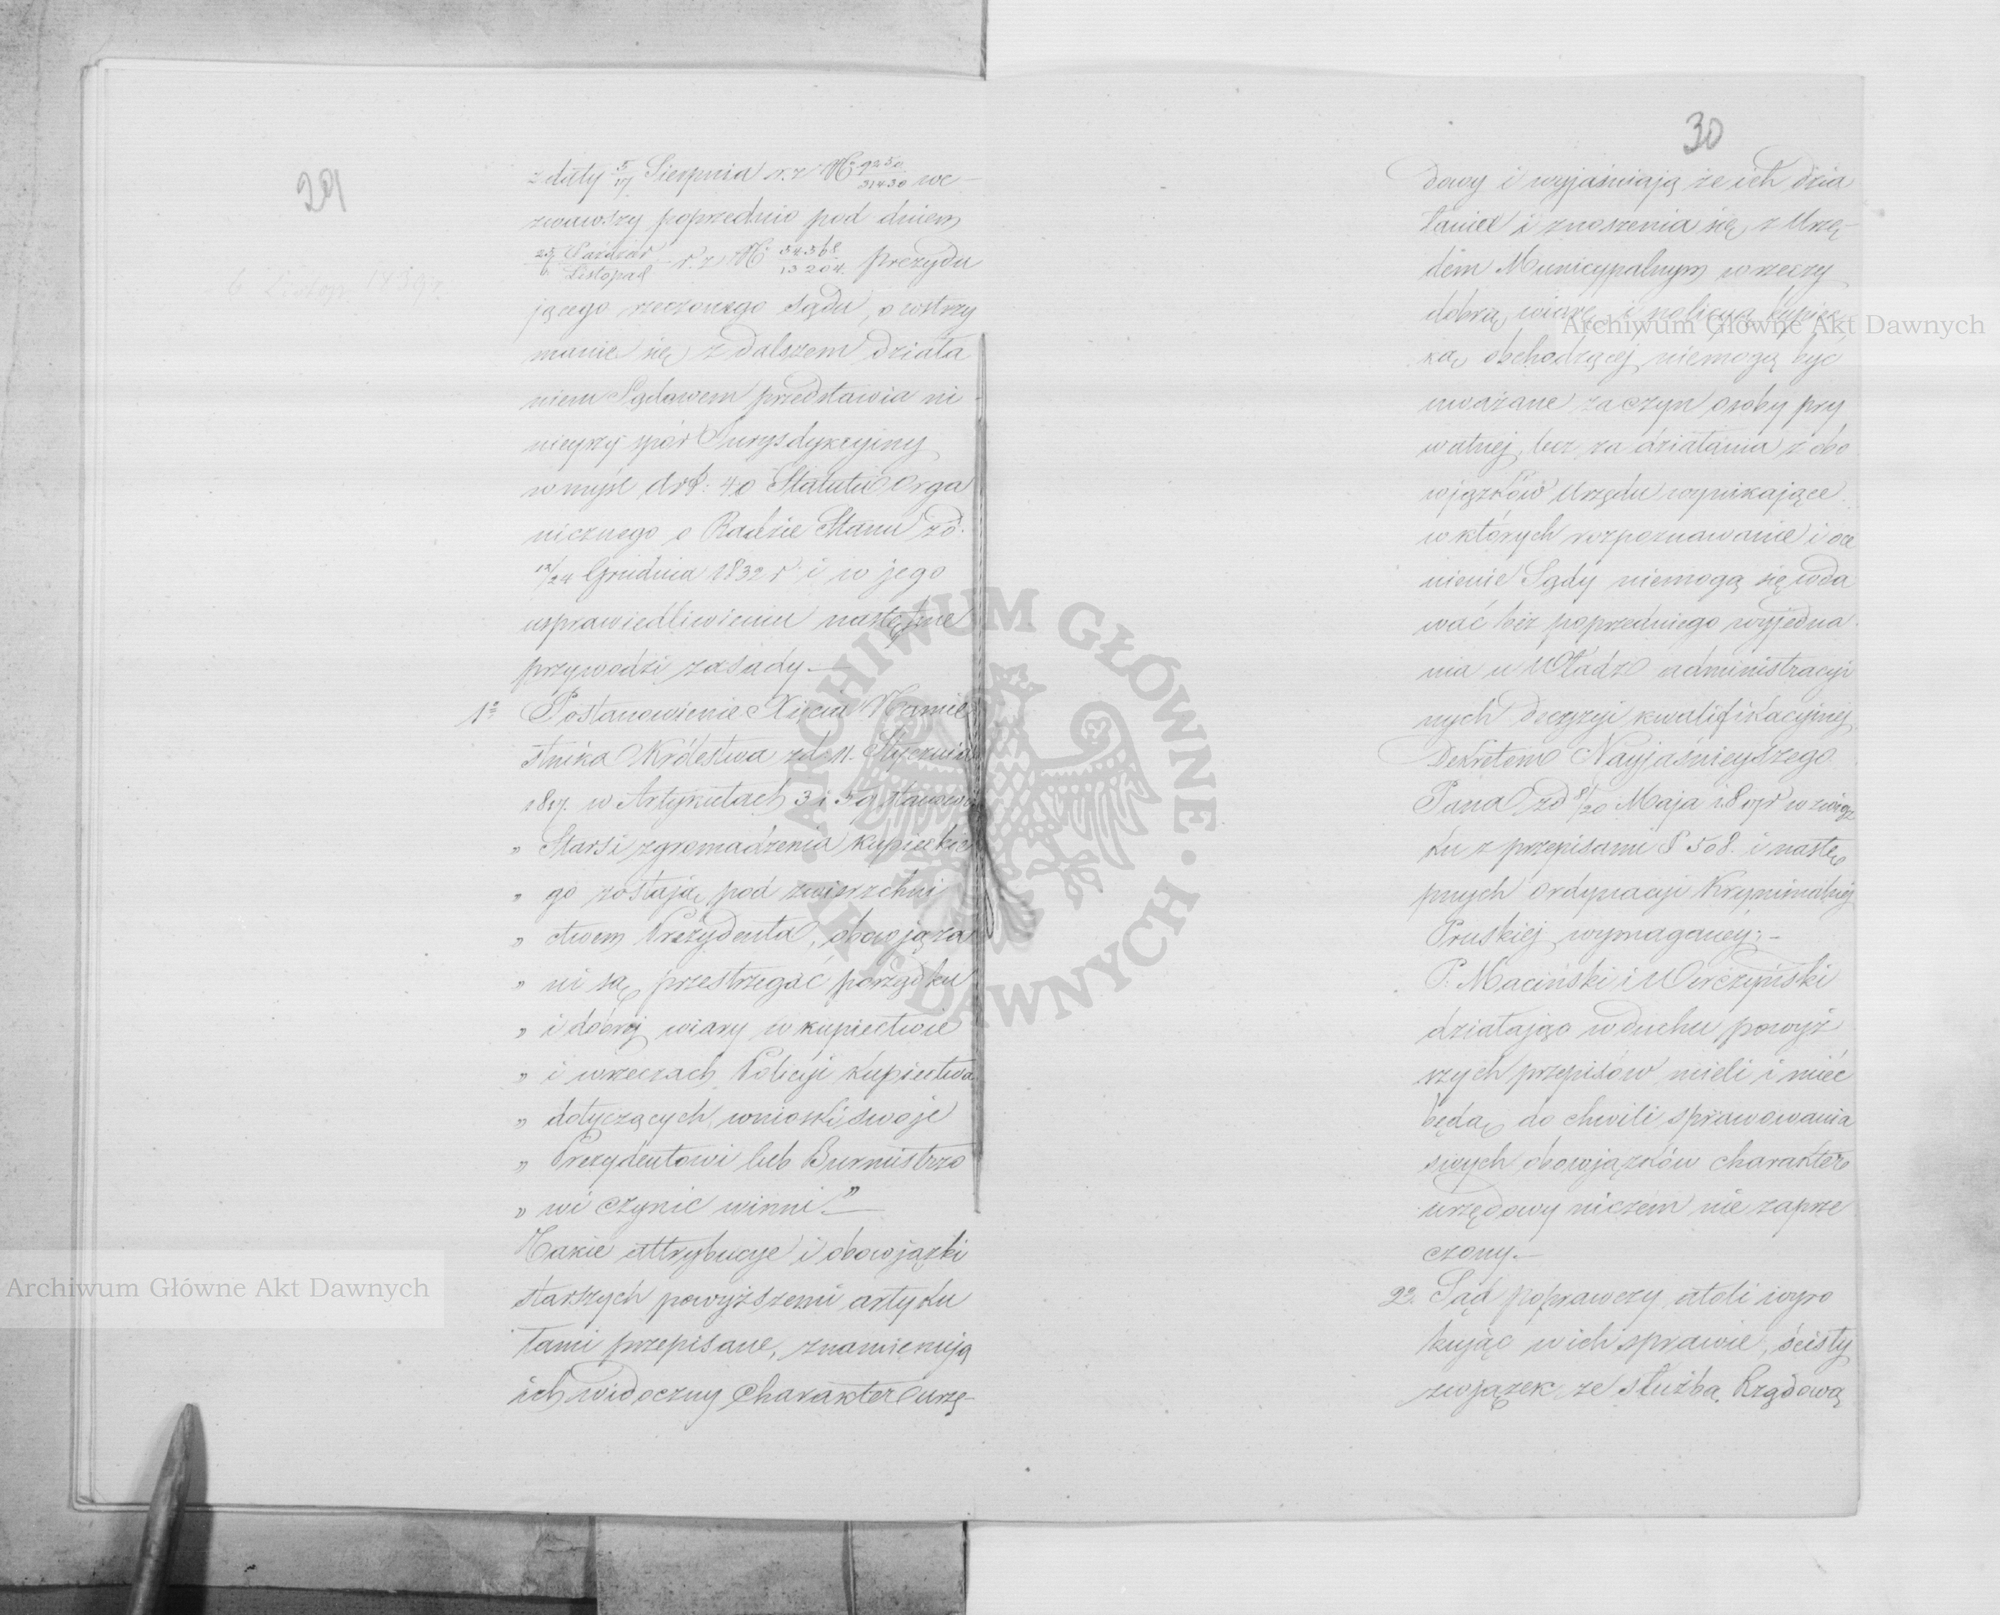 29
z daty 5/17 Sierpnia r. z. № 9250/31430 we-
zwawszy poprzednio pod dniem
25 Paździer/6 Listopad r. z. № 54368/13204. prezydu
jącego rzeczonego Sądu, o wstrzy
manie się z dalszem działa
niem Sądowem przedstawia ni
niejszy spór Jurysdykcyjny
w myśl Art: 40 Statutu Orga
nicznego o Radzie Stanu zd.
12/24 Grudnia 1832 r. i w jego
usprawiedliwieniu następne
przywodzi zasady.—
1º Postanowienie Xięcia Namie
stnika Królestwa zd. 11. Stycznia
1817. w Artykułach 3 i 59 stanowi
„ Starsi zgromadzenia kupieckie
„ go zostają pod zwierzchni
„ ctwem Prezydenta, obowiąza
„ ni są przestrzegać porządku
„ i dobrej wiary w kupiectwie
„ i w rzeczach Policyi kupiectwa
„ dotyczących, wnioski swoje
„ Prezydentowi lub Burmistrzo
„ wi czynić winni”—
Takie attrybucye i obowiązki
starszych powyższemi artyku
łami przepisane, znamienują
ich widoczny Charakter urzę-
30
dowy i wyjaśniają że ich dzia
łanie i znoszenia się z Urzę-
dem Municypalnym w rzeczy
dobrą wiarę i policyą kupiec
ką obchodzącej, niemogą być
uważane za czyn osoby pry
watnej, lecz za działania z obo
wiązków Urzędu wynikające
w których rozpoznawanie i oce
nienie Sądy niemogą się wda
wać bez poprzedniego wyjedna
nia u Władz administracyi
nych decyzyi kwalifikacyjnej
Dekretem Najjaśniejszego
Pana zd 8/20 Maja w związ
ku z przepisami § 508. i nastę
pnych Ordynacyi Kryminalnej
Pruskiej wymaganej;—
P. Maciński i
działając w duchu powyż
szych przepisów mieli i mieć
będą do chwili sprawowania
swych obowiązków charakter
urzędowy niczem nie zaprze
czony.—
2º. Sąd poprawczy atoli wyro
kując w ich sprawie, ścisły
związek ze służbą Rządową
Archiwum Główne Akt Dawnych
Archiwum Główne Akt Dawnych
ARCHIWUM GŁÓWNE · AKT DAWNYCH ·